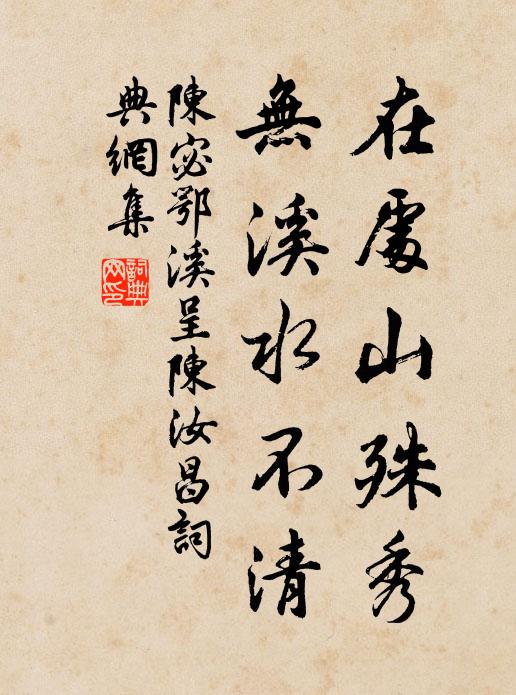 在處山殊秀
無溪水不清
陳宓鄂溪呈陳汝昌詞
典網集
詞典
网印